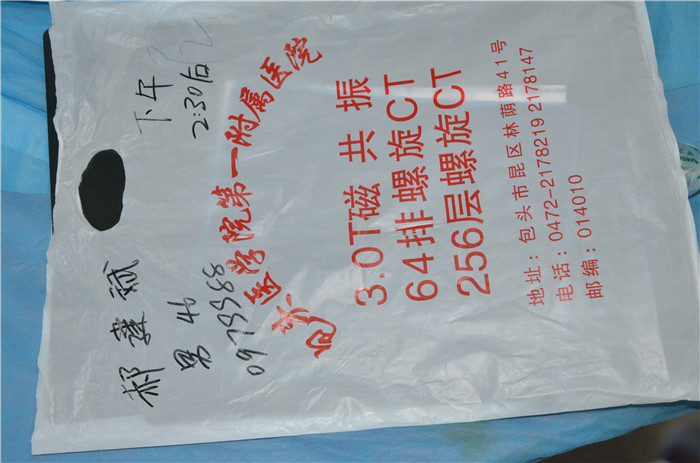 郝 男 46
0979988
下午
2:30后
包头医学院第一附属医院
3.0T磁共振
64排螺旋CT
256层螺旋CT
地址：包头市昆区林荫路41号
电话：0472-2178219 2178147
邮编：014010